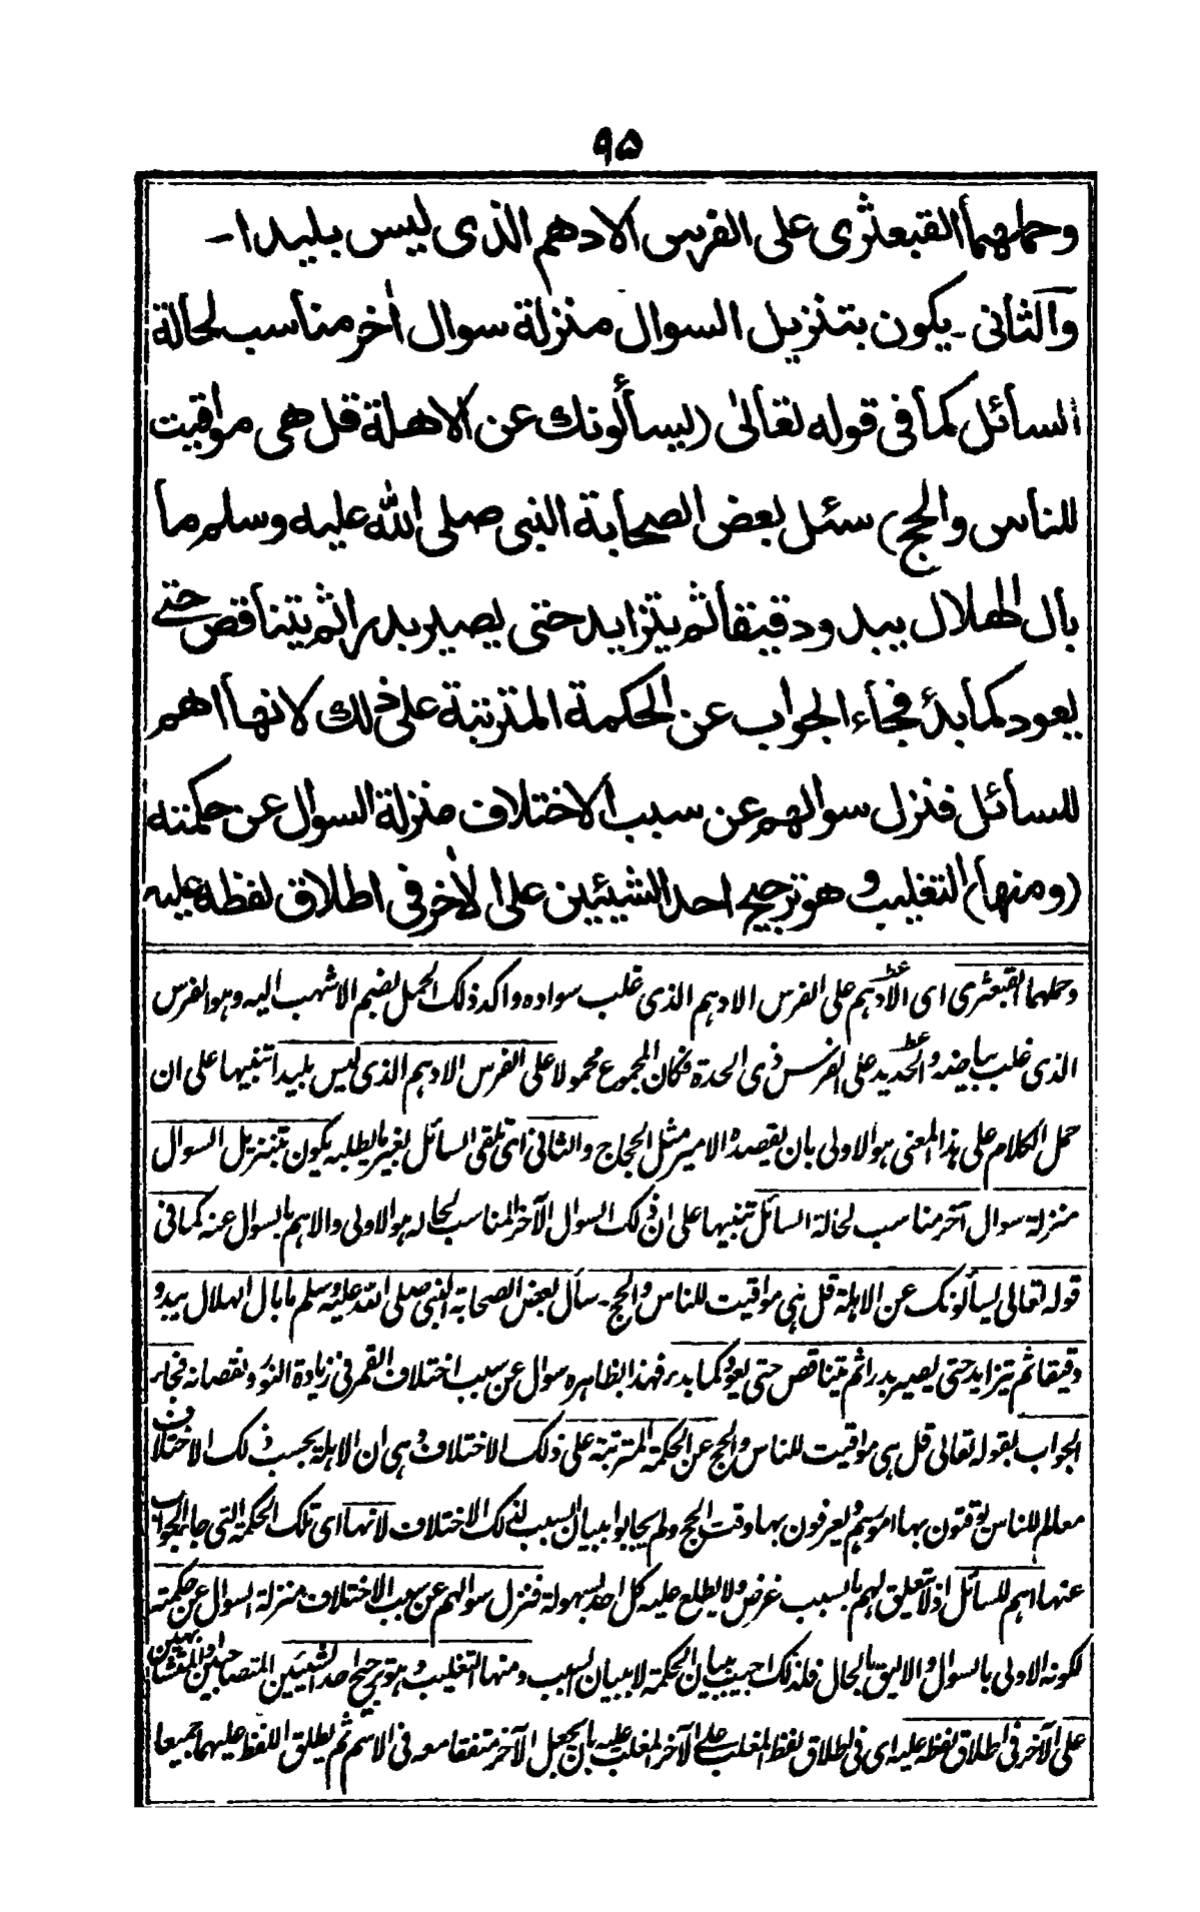 ٩٥
وحملهما القبعثرى على الفرس الادهم الذى ليس بليدا۔
والثانى ۔ يكون بتنزيل السوال منزلة سوال اٰخر مناسب لحالة
السائل كما فى قوله تعالىٰ (يسألونك عن الاهلة قل هى مواقيت
للناس والحج) سئل بعض الصحابة النبى صلى الله عليه وسلم ما
بال الهلال يبدو دقيقا ثم يتزايد حتى يصير بدرا ثم يتناقص حتى
يعود كما بدئ فجاء الجواب عن الحكمة المترتبة على ذلك لانها اهم
للسائل فنزل سوالهم عن سبب الاختلاف منزلة السوال عن حكمته
(ومنها) التغليب وهو ترجيح احد الشيئين على الاٰخر فى اطلاق لفظه عليه
وحملهما القبعثرى اى الادهم على الفرس الادهم الذى غلب سواده واكد ذلك الحمل بضم الاشهب اليه وهو الفرس
الذى غلب بياضه والحديد على الفرس ذى الحدة فكان المجموع محمولا على الفرس الادهم الذى ليس بليدا تنبيها على ان
حمل الكلام على هذا المعنى هو الاولى بان يقصده الامير مثل الحجاج والثانى اى تلقى السائل بغير ما يطلبه يكون بتنزيل السوال
منزلة سوال آخر مناسب لحالة السائل تنبيها على ان ذلك السوال الآخر المناسب لحاله هو الاولى والاهم بالسوال عنه كما فى
قوله تعالى يسألونك عن الاهلة قل هى مواقيت للناس والحج ۔ سأل بعض الصحابة النبى صلى الله عليه وسلم ما بال الهلال يبدو
دقيقا ثم يتزايد حتى يصير بدرا ثم يتناقص حتى يعود كما بدء فهذا بظاهره سوال عن سبب اختلاف القمر فى زيادة النور ونقصانه فجاء
الجواب بقوله تعالى قل هى مواقيت للناس والحج عن الحكمة المترتبة على ذلك الاختلاف وهى ان الاهلة بحسب ذلك الاختلاف
معالم للناس يوقتون بها امورهم ويعرفون بها وقت الحج ولم يجابوا ببيان السبب لذلك الاختلاف لانها اى تلك الحكمة التى جاء الجواب
عنها اهم للسائل اذ لا تعلق لهم بالسبب غرض ولا يطلع عليه كل احد بسهولة فنزل سوالهم عن سبب الاختلاف منزلة السوال عن حكمته
لكونه الاولى بالسوال والاليق بالحال فلذلك اجيب ببيان الحكمة لا ببيان السبب ومنها التغليب وهو ترجيح احد الشيئين المتصاحبين او المتشابهين
على الآخر فى اطلاق لفظه عليه اى فى اطلاق لفظ المغلب على الآخر المغلب عليه بان يجعل الآخر متفقا معه فى الاسم ثم يطلق اللفظ عليهما جميعا